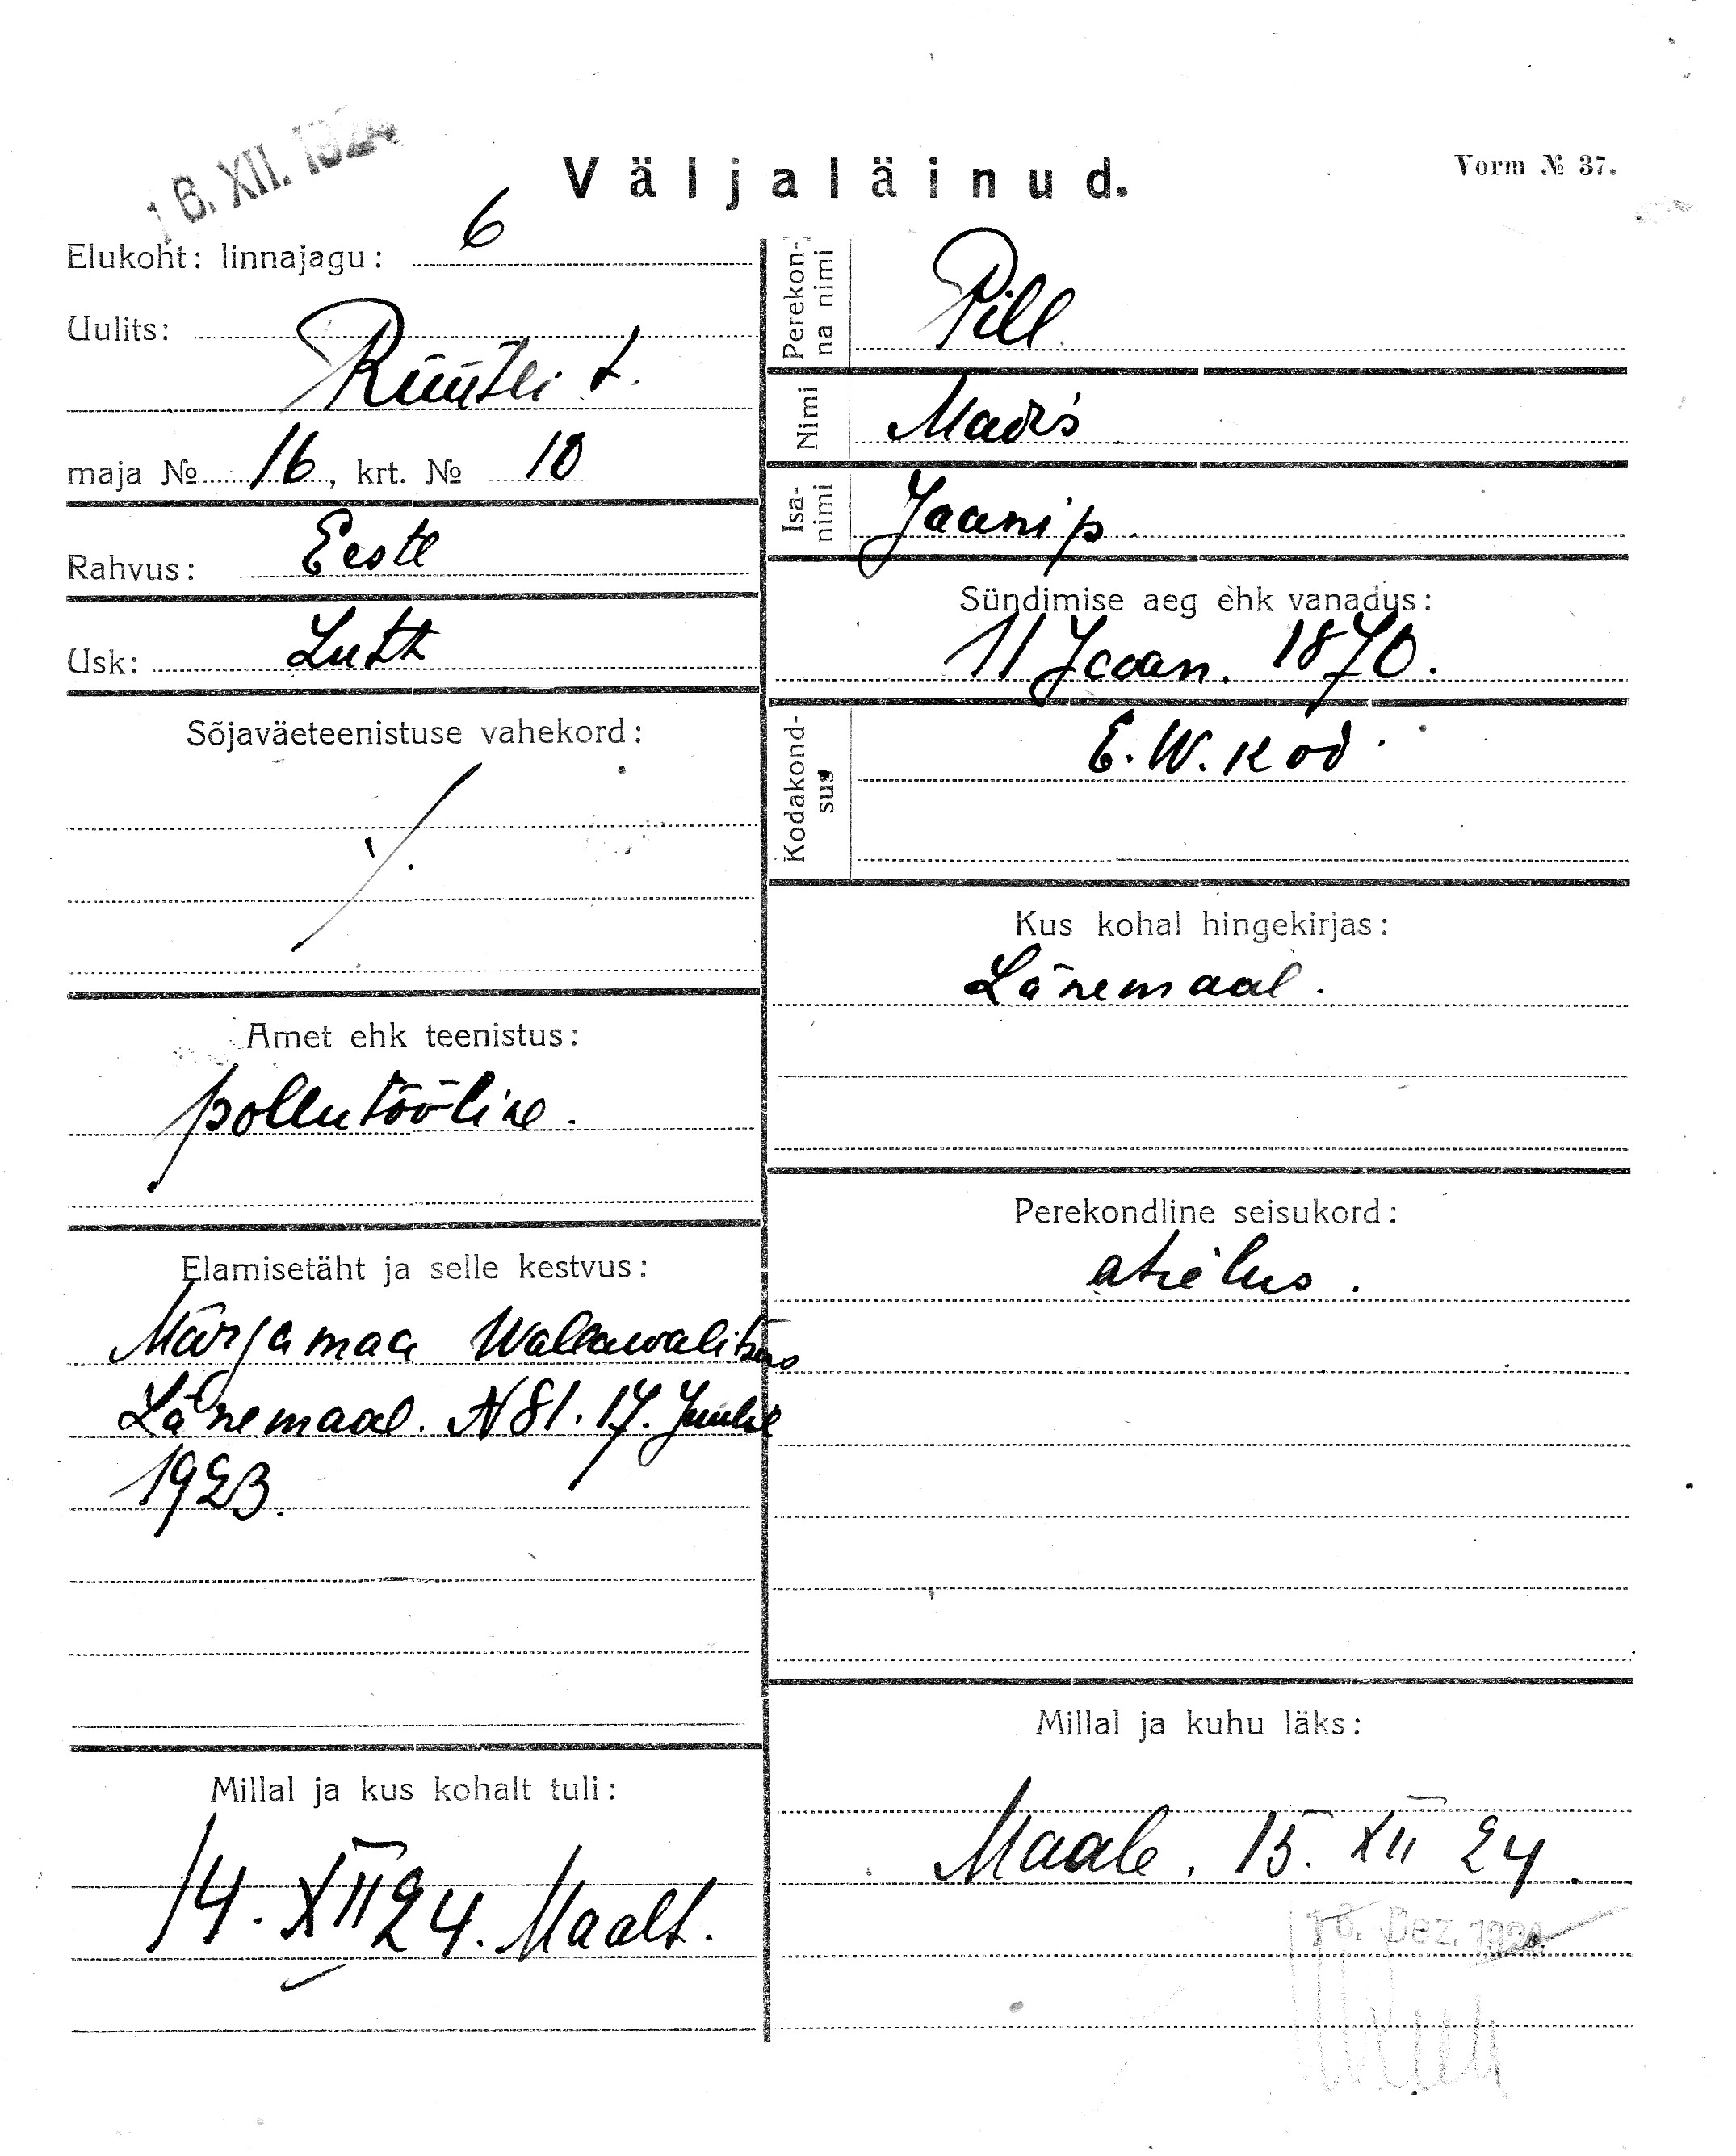 16. XII. 1924
Väljaläinud.
Vorm № 37.
Elukoht: linnajagu: 6
Uulits:
Rüütli t.
maja № 16, krt. № 10
Rahvus: Eeste
Usk: Luth
Sõjaväeteenistuse vahekord:
Amet ehk teenistus:
pollutööline.
Elamisetäht ja selle kestvus:
Märjamaa Wallawalitsus
Länemaal. N 81. 17. Juulil
1923.
Millal ja kus kohalt tuli:
14. XII 24. Maalt.
Perekonna nimi
Pill
Nimi
Madis
Isanimi
Jaani p.
Sündimise aeg ehk vanadus:
11 Jaan. 1870.
Kodakondsus
E. W. kod.
Kus kohal hingekirjas:
Länemaal.
Perekondline seisukord:
abielus.
Millal ja kuhu läks:
Maale. 15. XII 24.
16. Dez. 1924